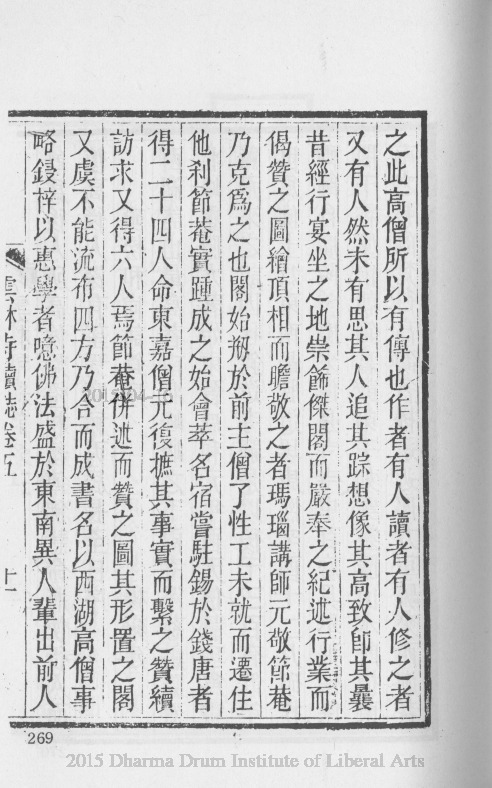 之此高僧所以有傳也作者有人讀者有人修之者
又有人然未有思其人追其踪想像其高致卽其曩
昔經行宴坐之地崇飾傑閣而嚴奉之紀述行業而
偈贊之圖繪頂相而瞻敬之者瑪瑙講師元敬節菴
乃克爲之也閣始剙於前主僧了性工未就而遷住
他刹節菴實踵成之始會萃名宿嘗駐錫於錢唐者
得二十四人命東嘉僧元復摭其事實而繫之贊續
訪求又得六人焉節菴併述而贊之圖其形置之閣
又虞不能流布四方乃合而成書名以西湖高僧事
略鋟梓以惠學者噫佛法盛於東南異人輩出前人
雲林寺續誌卷五
十一
269
2015 Dharma Drum Institute of Liberal Arts